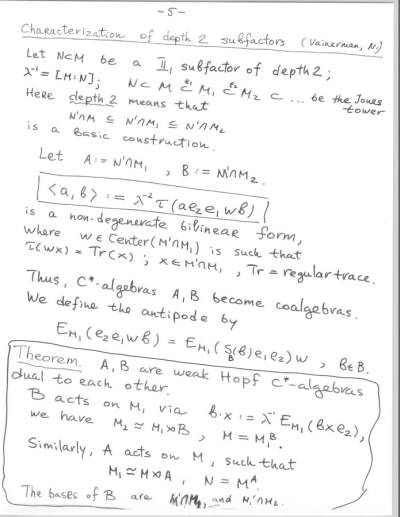 -5-
Characterization of depth 2 subfactors (Vainerman, N.)
Let N⊂M be a II₁ subfactor of depth 2;
λ⁻¹ = [M:N]; N⊂ M ⊂^{e₁} M₁ ⊂^{e₂} M₂ ⊂ ... be the Jones tower
Here depth 2 means that
N'∩M ⊆ N'∩M₁ ⊆ N'∩M₂
is a basic construction.
Let A := N'∩M₁ , B := M'∩M₂.
⟨a, b⟩ := λ⁻² τ(a e₂ e₁ w b)
is a non-degenerate bilinear form,
where w∈Center(M'∩M₁) is such that
τ(wx) = Tr(x) ; x∈M'∩M₁ , Tr = regular trace.
Thus, C*-algebras A, B become coalgebras.
We define the antipode by
E_{M₁}(e₂e₁wb) = E_{M₁}(S_B(b)e₁e₂)w , b∈B.
Theorem. A, B are weak Hopf C*-algebras
dual to each other.
B acts on M₁ via b·x := λ⁻¹ E_{M₁}(bxe₂),
we have M₂ ≃ M₁⋊B , M = M₁^B.
Similarly, A acts on M, such that
M₁ ≃ M⋊A , N = M^A.
The bases of B are M'∩M₁, and M₁'∩M₂.